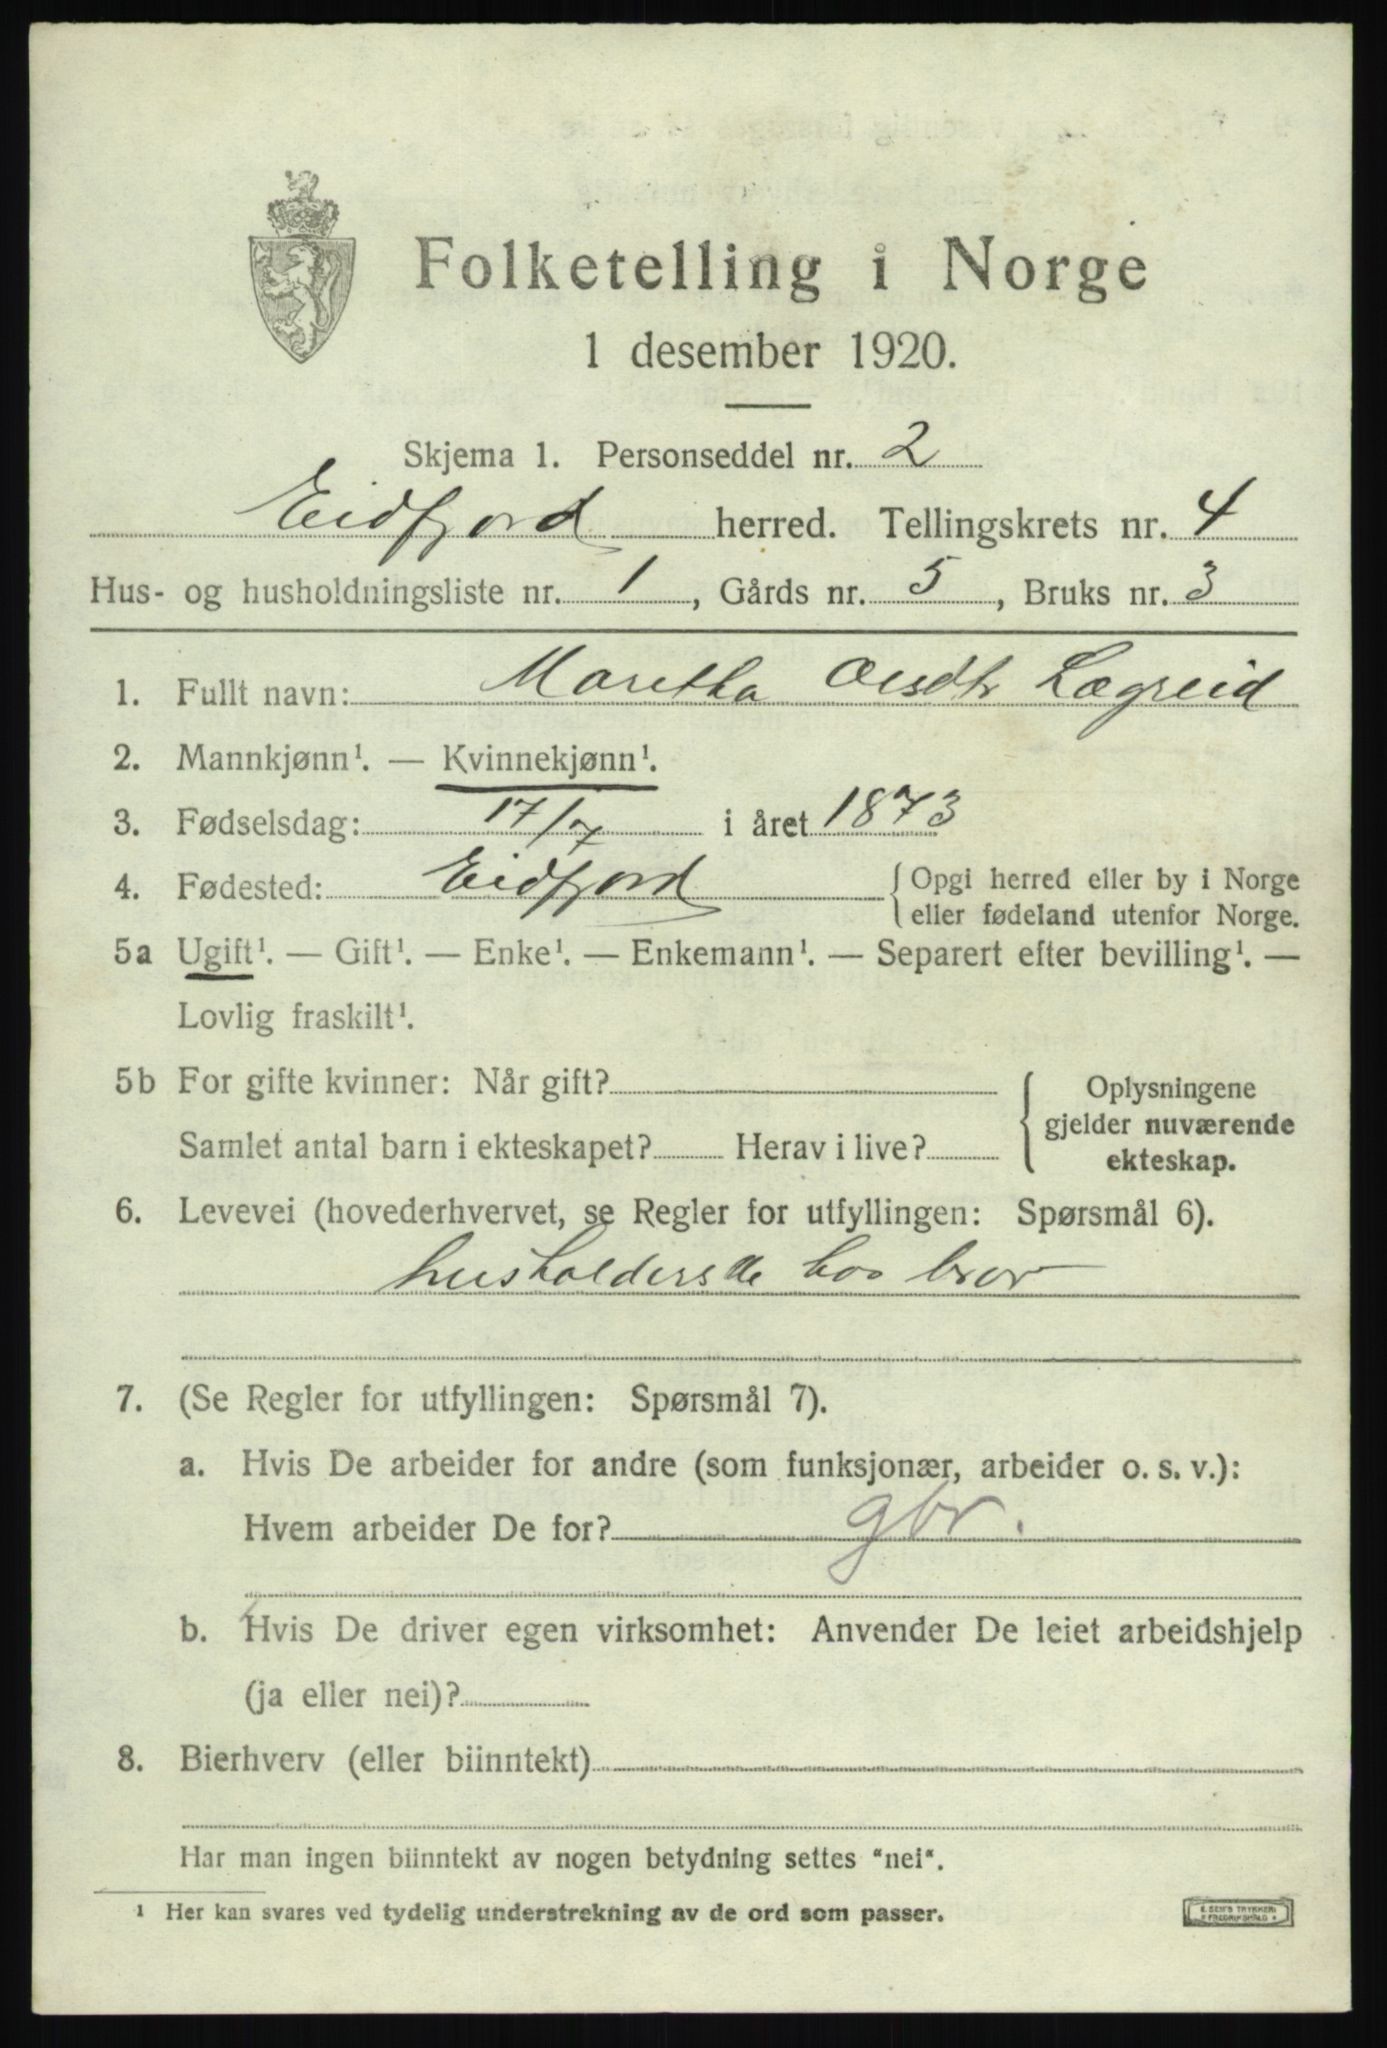 Folketelling i Norge
1 desember 1920.
Skjema 1. Personseddel nr. 2
Eidfjord herred. Tellingskrets nr. 4
Hus- og husholdningsliste nr. 1, Gårds nr. 5, Bruks nr. 3
1. Fullt navn: Maritha Olsdtr Lægreid
2. Mannkjønn¹. — Kvinnekjønn¹.
3. Fødselsdag: 17/7 i året 1873
4. Fødested: Eidfjord { Opgi herred eller by i Norge
eller fødeland utenfor Norge.
5a Ugift¹. — Gift¹. — Enke¹. — Enkemann¹. — Separert efter bevilling¹. —
Lovlig fraskilt¹.
5b For gifte kvinner: Når gift?
Samlet antal barn i ekteskapet? Herav i live?
{ Oplysningene
gjelder nuværende
ekteskap.
6. Levevei (hovederhvervet, se Regler for utfyllingen: Spørsmål 6).
husholderske hos bror
7. (Se Regler for utfyllingen: Spørsmål 7).
a. Hvis De arbeider for andre (som funksjonær, arbeider o. s. v.):
Hvem arbeider De for? gbr.
b. Hvis De driver egen virksomhet: Anvender De leiet arbeidshjelp
(ja eller nei)?
8. Bierhverv (eller biinntekt)
Har man ingen biinntekt av nogen betydning settes "nei".
¹ Her kan svares ved tydelig understrekning av de ord som passer.